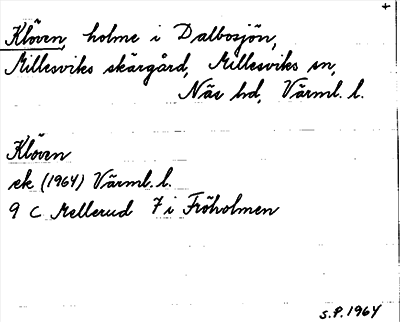 +
Klöven, holme i Dalbosjön,
Millesviks skärgård, Millesviks sn,
Näs hd, Värml. l.
Klöven
ek (1964) Värml. l.
9 C Mellerud 7 i Fröholmen
S.P. 1964